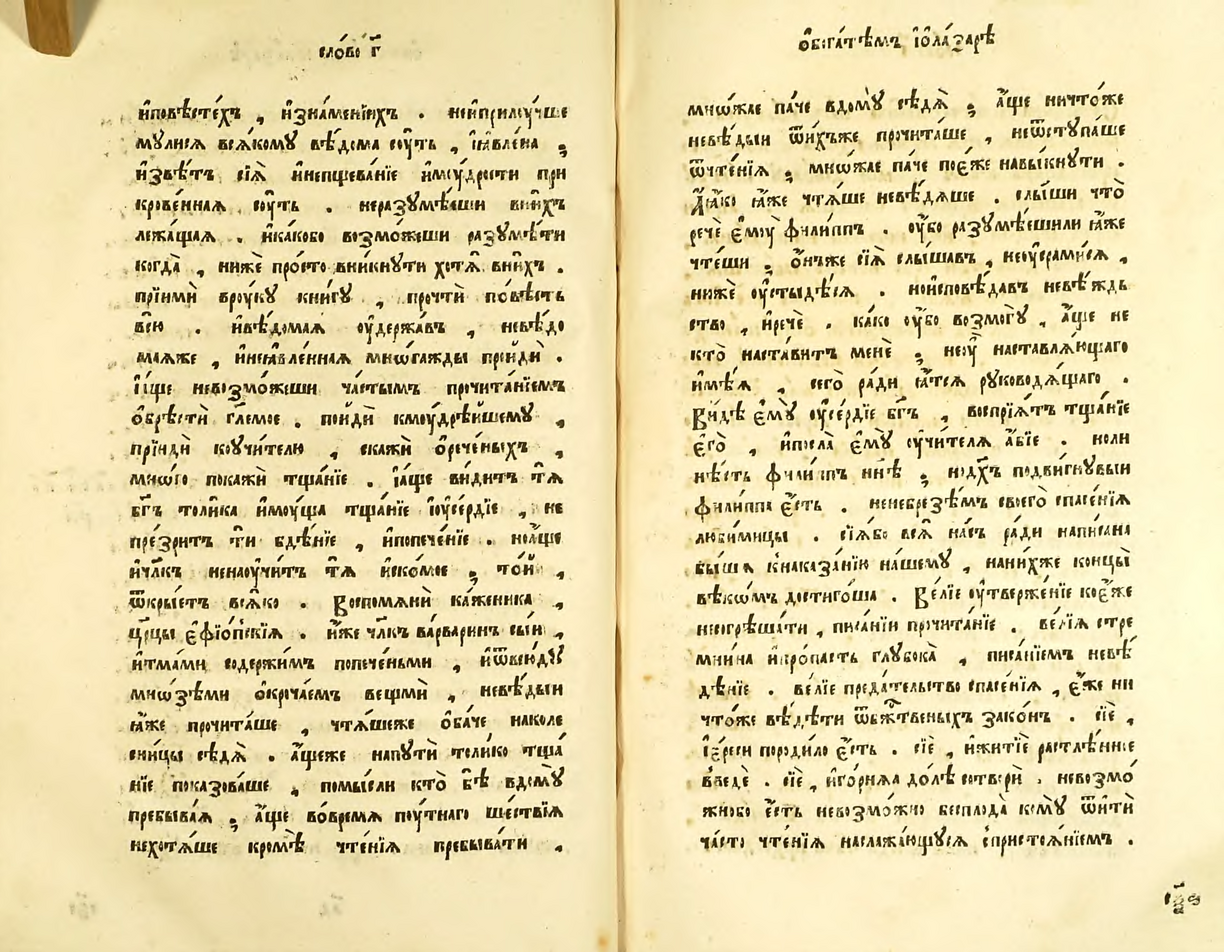 сло́во г҃
и҆повѣсте́хъ , и҆зна́менїихъ . неи҆прилꙋ́чше
мꙋлисѧ всѧ́комꙋ вѣ́дома сꙋ́ть , ꙗ҆вле́на ;
и҆звѣ́тъ сїѧ̀ и҆непщева́нїе и҆мꙋ́дрости при
крове́нная сꙋ́ть . неразꙋмѣ́еши вни́хъ
лежа́щая . и҆ка́кобо возмо́жеши разꙋмѣ́ти
когда̀ , нижѐ про́сто вни́кнꙋти хотѧ̀ вни́хъ .
прїимѝ врꙋ́кꙋ кни́гꙋ , прочтѝ по́вѣсть
всю̀ . и҆вѣ́домая ᲂу҆держа́въ , невѣ́до
маѧже , и҆неꙗ҆вле́нная мнѡ́гажды прейдѝ .
І҆а́ще невозмо́жеши ча́стымъ прочита́нїемъ
ѻ҆брѣстѝ гл҃емое . поидѝ кмꙋдрѣ́йшемꙋ ,
прїидѝ коꙋчи́телю , скажѝ ѻ҆рече́ныхъ ,
мно́го покажѝ тща́нїе . ꙗ҆́ще ви́дитъ тѧ̀
бг҃ъ толи́ка и҆мꙋ́ща тща́нїе і҆ᲂу҆се́рдїе , не
пре́зритъ ти̑ бдѣ́нїе , и҆попече́нїе . нѡа́ще
и҆чл҃къ ненаꙋчи́тъ тѧ̀ и҆ско́мое ; то́й ,
ѿкры́етъ всѧ́ко . Воспомѧнѝ ка́женика ,
цр҃цы є҆ѳїо́пскїѧ . и҆́же чл҃къ ва́рваринъ сы́и ,
и҆тма́ми содержи́мъ попече́ньми , и҆ѿвсю́дꙋ
мно́зѣми ѻ҆крꙋча́емъ вещмѝ , невѣ́дыи
ꙗ҆̀же прочита́ше , чтѧ́шеже ѻ҆ба́че наколе
сни́цы сѣдѧ̀ . а҆́щеже напꙋтѝ толи́ко тща́
нїе пока́зоваше , помы́сли кто̀ бѣ̀ вдомꙋ̀
пребыва́ѧ ; а҆́ще во́время пꙋ́тнаго ше́ствїѧ
нехотѧ́ше кромѣ̀ чте́нїѧ пребыва́ти ,
ѻ҆бога́тѣмъ і҆ѻла́зарѣ
мно́жае па́че вдомꙋ̀ сѣдѧ̀ ; а҆́ще ничто́же
невѣ́дыи ѿни́хъже прочита́ше , неѿстꙋпа́ше
ѿчте́нїѧ ; мно́жае па́че посе́же навы́кнꙋти .
Да́ко ꙗ҆́же чтѧ́ше невѣ́дѧше . слы́ши что̀
речѐ є҆мꙋ̀ фили́ппъ . ᲂу҆́бо разꙋмѣ́ешили ꙗ҆̀же
чте́ши ; ѻ҆́нъже сїѧ̀ слы́шавъ , неꙋсрами́сѧ ,
нижѐ ᲂу҆стыдѣ́сѧ . нои҆сповѣ́давъ невѣ́ждь
ство , и҆речѐ . ка́ко ᲂу҆́бо возмогꙋ̀ , а҆́ще не
кто̀ наста́витъ менѐ ; неꙋ҆̀ наставлѧ́ющаго
и҆мѣ́ѧ , сего̀ ра́ди ꙗ҆́тсѧ рꙋководѧ́щаго .
Ви́дѣ є҆мꙋ̀ ᲂу҆се́рдїе бг҃ъ , воспрїѧ́тъ тща́нїе
є҆го̀ , и҆посла̀ є҆мꙋ̀ ᲂу҆чи́телѧ а҆́бїе . ноли
нѣ́сть фили́ппъ нн҃ѣ ; нодх҃ъ подви́гнꙋвыи
фили́ппа є҆́сть . ненебрезѣ́мъ своего̀ спасе́нїѧ
люби́мицы . сїѧ́бо всѧ̀ на́съ ра́ди напи́сана
бы́ша кнаказа́нїю на́шемꙋ , нани́хже концы̀
вѣкѡ́мъ достиго́ша . Ве́лїе ᲂу҆твержде́нїе косе́же
несогрѣша́ти , писа́нїи прочита́нїе . ве́лїѧ стре
мни́на и҆про́пасть глꙋбока̀ , писа́нїемъ невѣ́
дѣнїе . ве́лїе преда́тельство спасе́нїѧ , є҆́же ни
что́же вѣ́дѣти ѿбж҃твеныхъ зако́нъ . сїѐ ,
і҆е́реси породи́ло є҆́сть . сїѐ , и҆житїѐ растлѣ́нное
введѐ . сїѐ , и҆го́рняѧ до́лѣ сотворѝ . невозмо́
жнобо є҆́сть невозмо́жно бесплода̀ комꙋ̀ ѿитѝ
ча́сто чте́нїѧ наслажа́ющꙋсѧ спристоѧ́нїемъ .